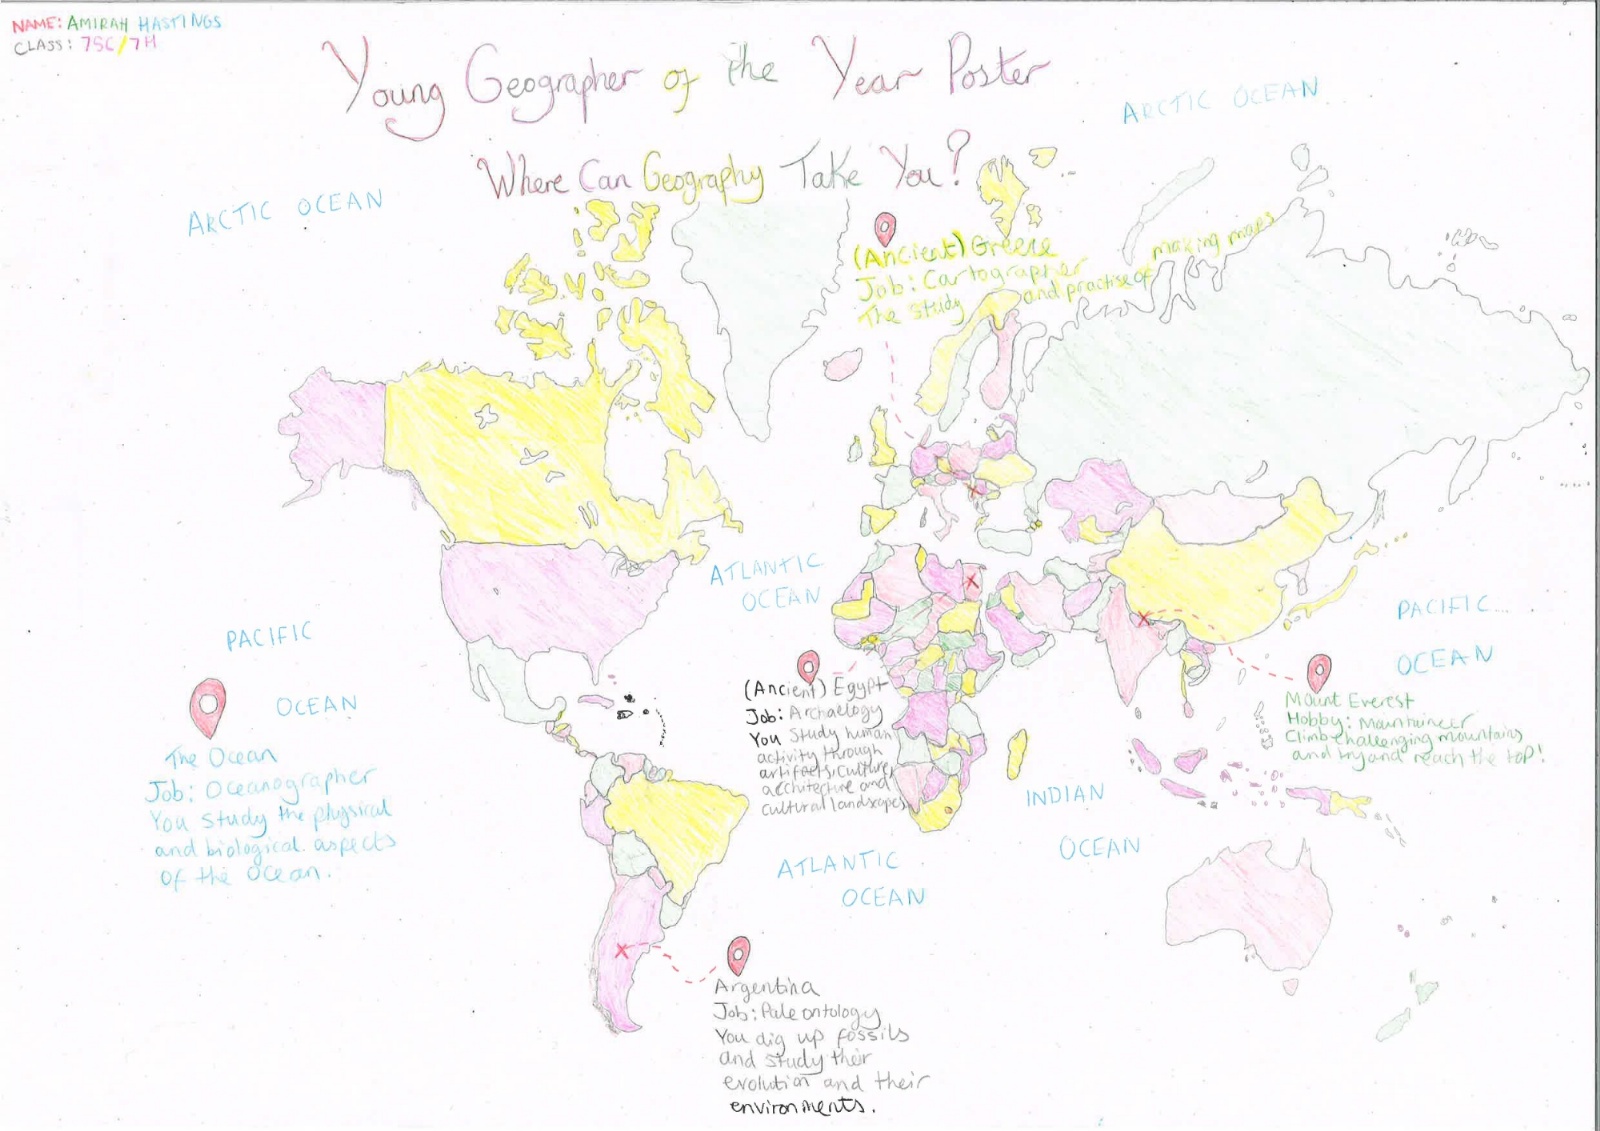 NAME: AMIRAH HASTINGS
CLASS: 7SC/7H
Young Geographer of the Year Poster
Where Can Geography Take You?
ARCTIC OCEAN
ARCTIC OCEAN
(Ancient) Greece
Job: Cartographer
The study and practise of making maps
ATLANTIC
OCEAN
PACIFIC
OCEAN
PACIFIC
OCEAN
The Ocean
Job: Oceanographer
You study the physical
and biological aspects
of the ocean.
(Ancient) Egypt
Job: Archaelogy
You study human
activity through
artifacts, culture,
architecture and
cultural landscapes
Mount Everest
Hobby: Mountaineer
Climb challenging mountains
and try and reach the top!
INDIAN
OCEAN
ATLANTIC
OCEAN
Argentina
Job: Paleontology
You dig up fossils
and study their
evolution and their
environments.